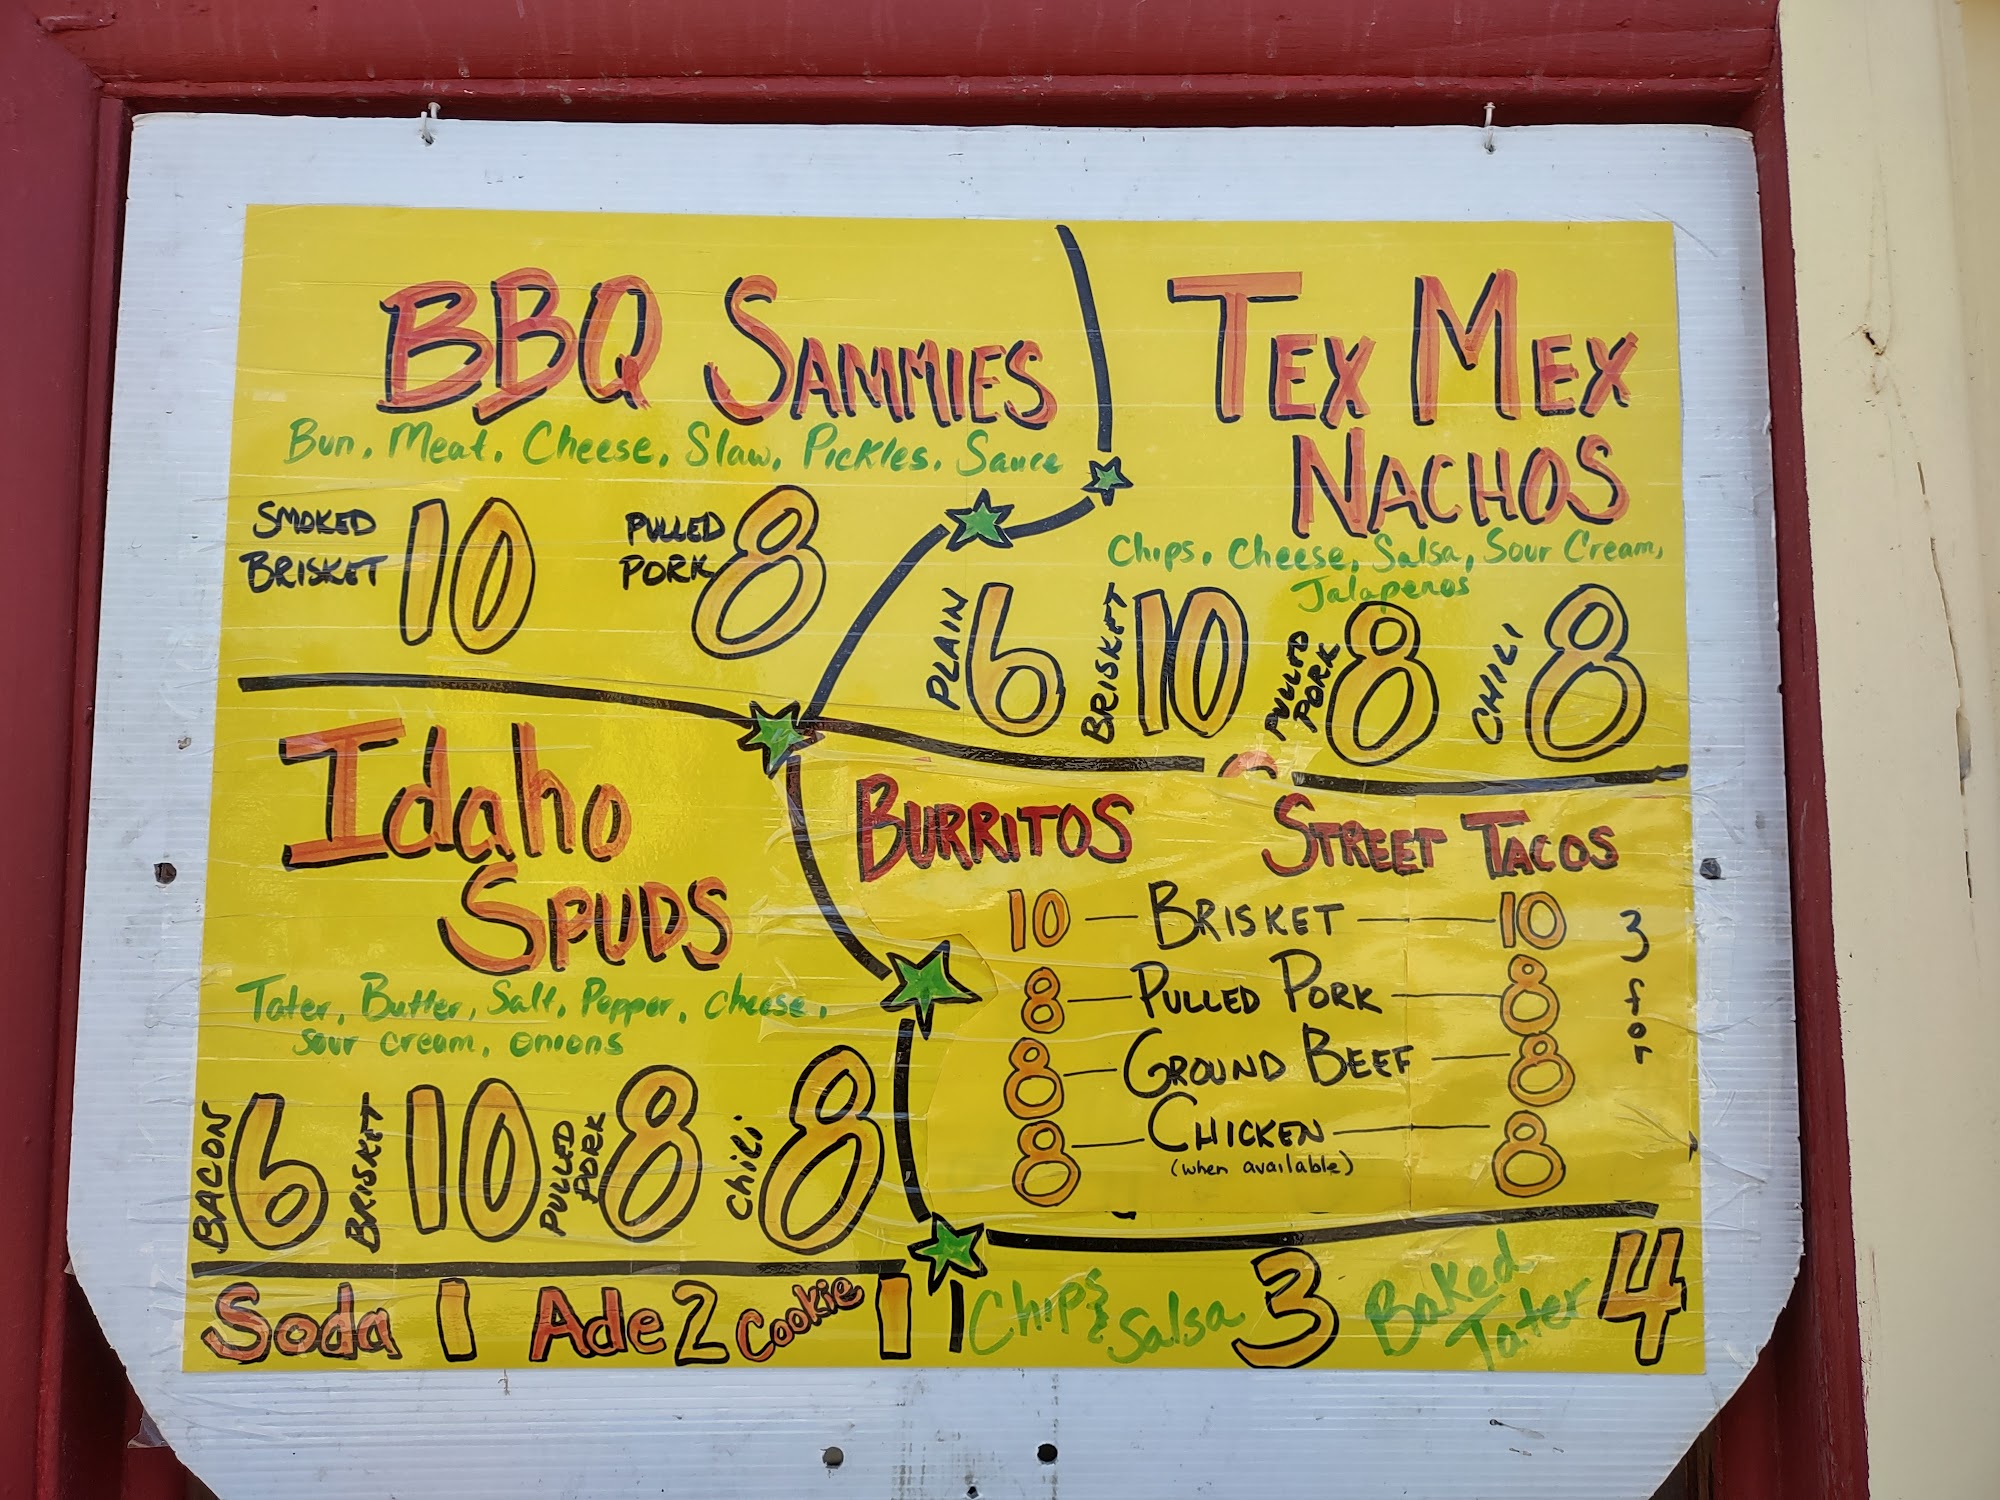 BBQ SAMMIES
Bun, Meat, Cheese, Slaw, Pickles, Sauce
SMOKED
BRISKET 10
PULLED
PORK 8
TEX MEX
NACHOS
Chips, Cheese, Salsa, Sour Cream,
Jalapenos
PLAIN 6
BRISKET 10
PULLED
PORK 8
CHILI 8
Idaho
SPUDS
Tater, Butter, Salt, Pepper, cheese,
sour cream, onions
BACON 6
BRISKET 10
PULLED
PORK 8
CHILI 8
BURRITOS STREET TACOS
10 — BRISKET — 10
8 — PULLED PORK — 8
8 — GROUND BEEF — 8
8 — CHICKEN — 8
(when available)
3 for
Soda 1 Ade 2 Cookie 1
Chips & Salsa 3
Baked
Tater 4